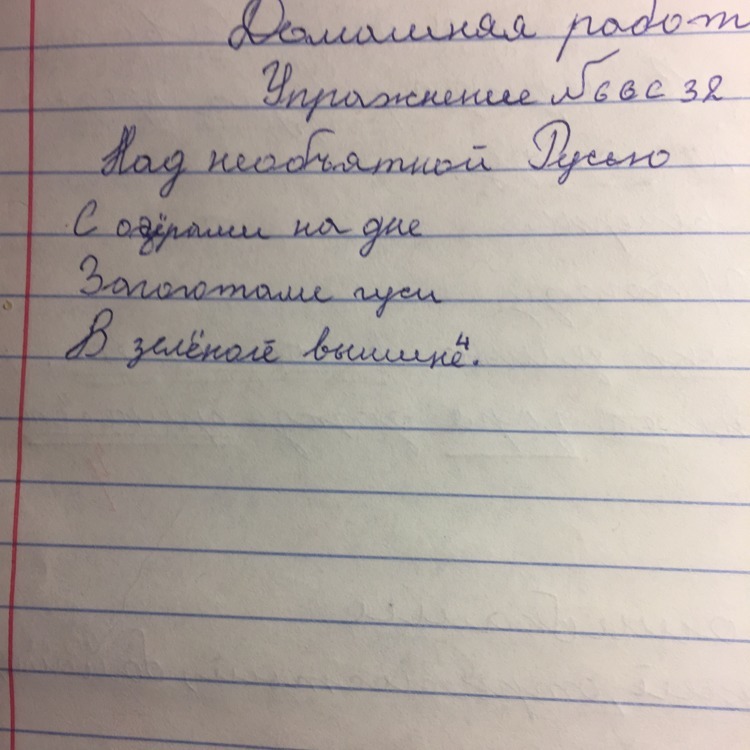 Домашняя работ
Упражнение №66 с 32
Над необъятной Русью
С озёрами на дне
Загоготали гуси
В зелёной вышине⁴.